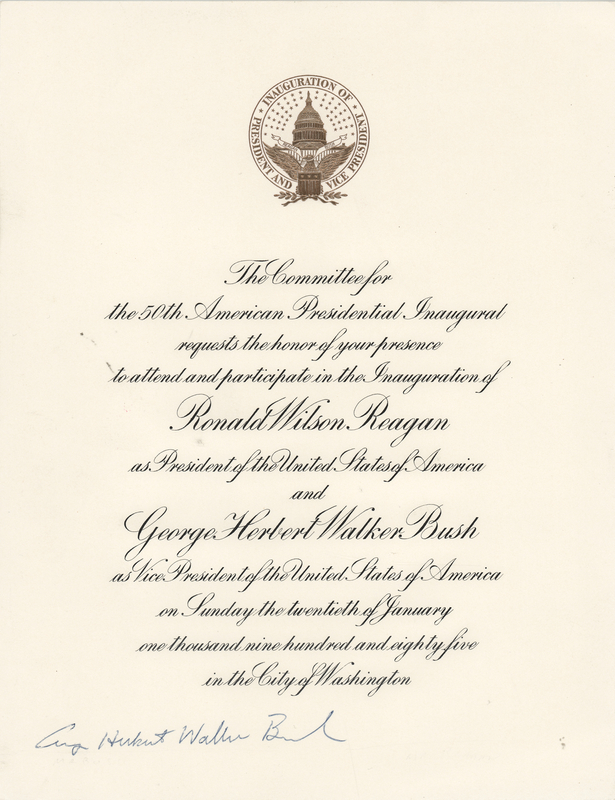 INAUGURATION OF
PRESIDENT AND VICE PRESIDENT
The Committee for
the 50th American Presidential Inaugural
requests the honor of your presence
to attend and participate in the Inauguration of
Ronald Wilson Reagan
as President of the United States of America
and
George Herbert Walker Bush
as Vice President of the United States of America
on Sunday the twentieth of January
one thousand nine hundred and eighty five
in the City of Washington
George Herbert Walker Bush